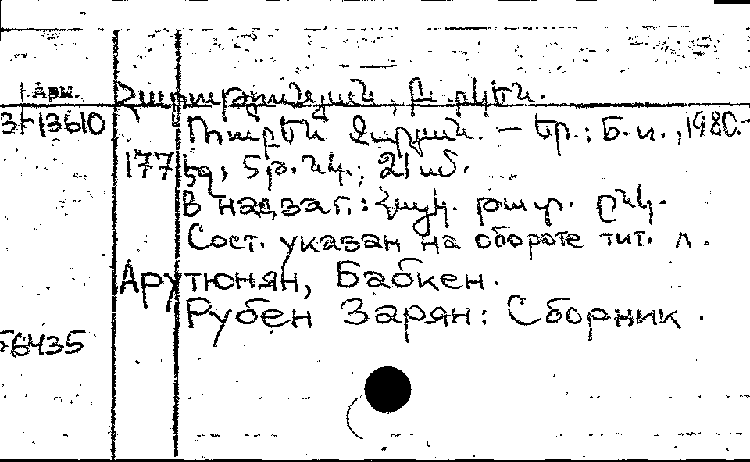 Арм.
Հարությունյան, Բաբկեն.
3-13610
Ռուբեն Զարյան. — Եր.: Б. и., 1980.-
177 էջ, 5 թ. նկ.; 21 սմ.
В надзаг.: Հայկ. թատր. ընկ.
Сост. указан на обороте тит. л.
Арутюнян, Бабкен.
Рубен Зарян: Сборник.
56435